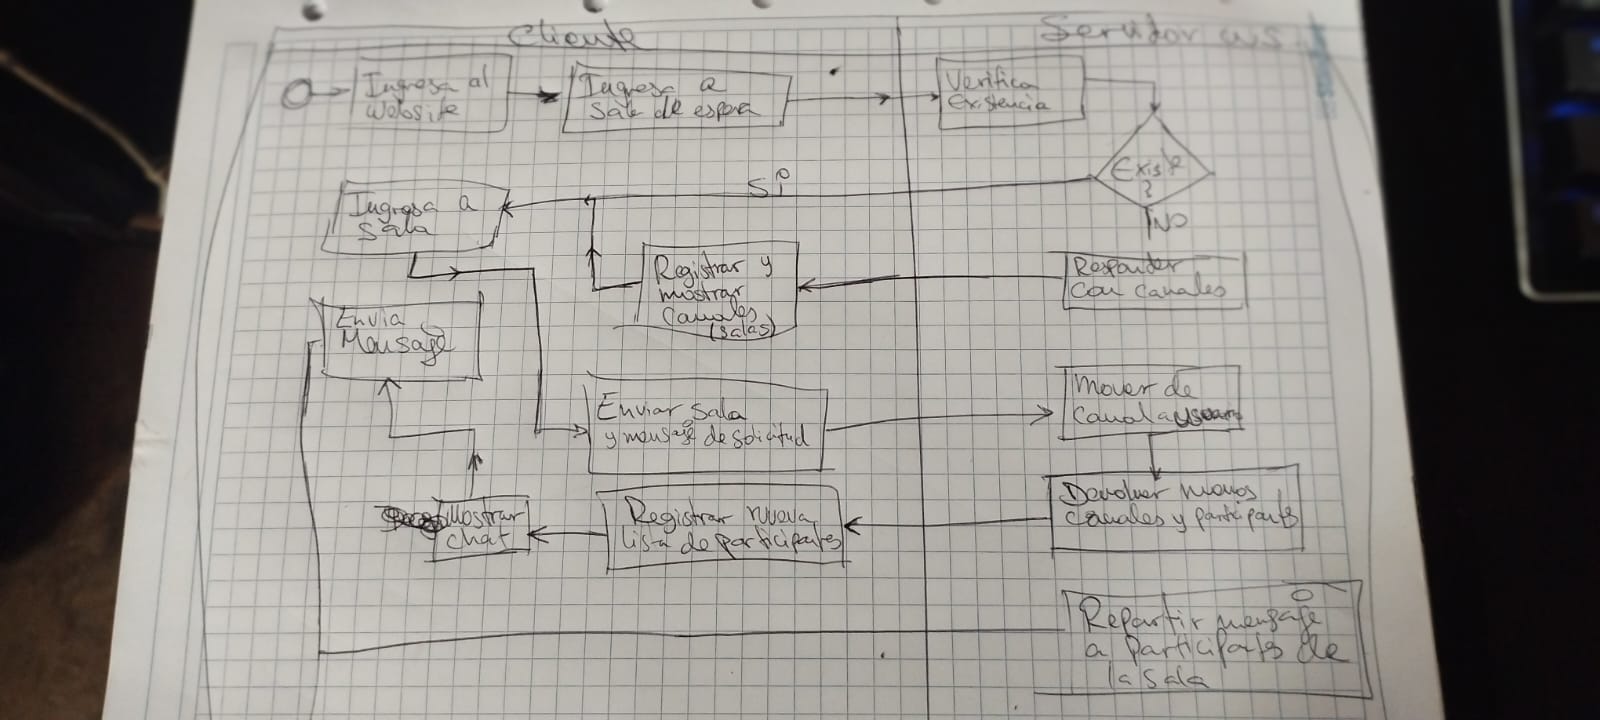 Cliente
Servidor WS
Ingresa al
Website
Ingresa a
Sala de espera
Verifica
existencia
Existe
?
Sí
NO
Ingresa a
Sala
Registrar y
mostrar
Canales
(salas)
Responder
con canales
Envia
Mensaje
Enviar sala
y mensaje de solicitud
Mover de
Canal a
Devolver nuevos
Canales y participants
Mostrar
chat
Registrar nueva
lista de participantes
Repartir mensaje
a participants de
la sala